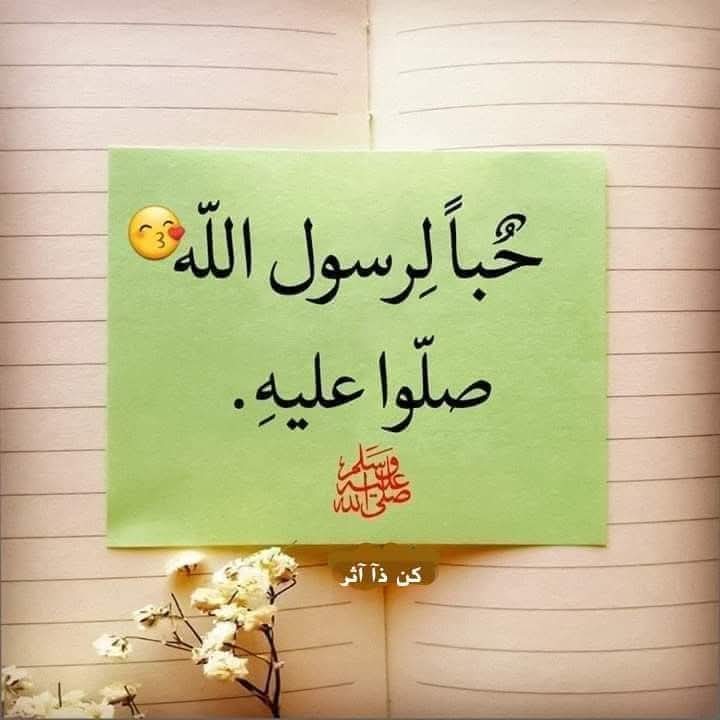 حُباً لِرسول اللّه 😘
صلّوا عليهِ.
صلى الله عليه وسلم
كن ذآ آثر